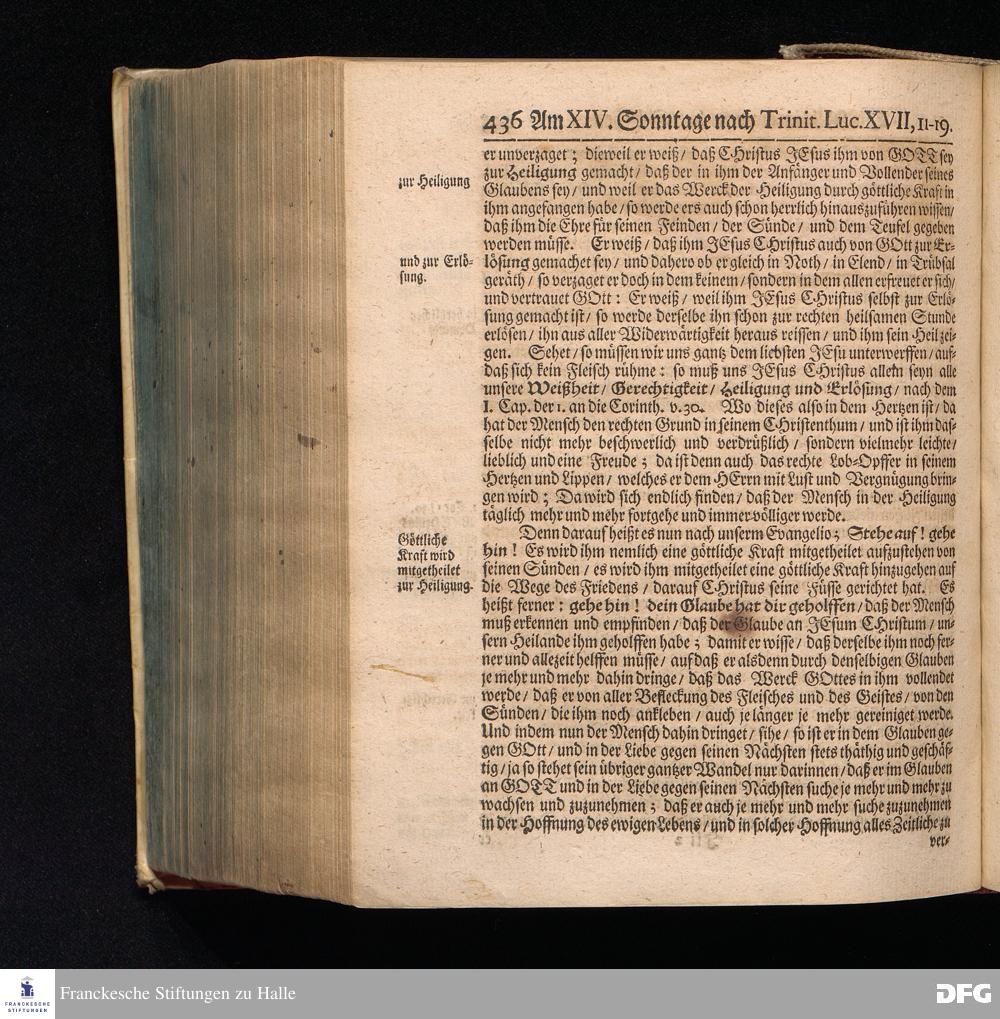 436 Am XIV. Sonntage nach Trinit. Luc. XVII, 11-19.
er unverzaget; dieweil er weiß/ daß CHristus JEsus ihm von GOTT sey
zur Heiligung gemacht/ daß der in ihm der Anfänger und Vollender seines
Glaubens sey/ und weil er das Werck der Heiligung durch göttliche Kraft in
ihm angefangen habe/ so werde ers auch schon herrlich hinauszuführen wissen/
daß ihm die Ehre für seinen Feinden/ der Sünde/ und dem Teufel gegeben
werden müsse. Er weiß/ daß ihm JEsus CHristus auch von GOtt zur Er-
lösung gemachet sey/ und dahero ob er gleich in Noth/ in Elend/ in Trübsal
geräth/ so verzaget er doch in dem keinem/ sondern in dem allen erfreuet er sich/
und vertrauet GOtt: Er weiß/ weil ihm JEsus CHristus selbst zur Erlö-
sung gemacht ist/ so werde derselbe ihn schon zur rechten heilsamen Stunde
erlösen/ ihn aus aller Widerwärtigkeit heraus reissen/ und ihm sein Heil zei-
gen. Sehet/ so müssen wir uns gantz dem liebsten JEsu unterwerffen/ auf-
daß sich kein Fleisch rühme: so muß uns JEsus CHristus allein seyn alle
unsere Weißheit/ Gerechtigkeit/ Heiligung und Erlösung/ nach dem
1. Cap. der 1. an die Corinth. v. 30. Wo dieses also in dem Hertzen ist/ da
hat der Mensch den rechten Grund in seinem CHristenthum/ und ist ihm das-
selbe nicht mehr beschwerlich und verdrüßlich/ sondern vielmehr leichte/
lieblich und eine Freude; da ist denn auch das rechte Lob-Opffer in seinem
Hertzen und Lippen/ welches er dem HErrn mit Lust und Vergnügung brin-
gen wird; Da wird sich endlich finden/ daß der Mensch in der Heiligung
täglich mehr und mehr fortgehe und immer völliger werde.
Denn darauf heißt es nun nach unserm Evangelio; Stehe auf! gehe
hin! Es wird ihm nemlich eine göttliche Kraft mitgetheilet aufzustehen von
seinen Sünden/ es wird ihm mitgetheilet eine göttliche Kraft hinzugehen auf
die Wege des Friedens/ darauf CHristus seine Füsse gerichtet hat. Es
heißt ferner: gehe hin! dein Glaube hat dir geholffen/ daß der Mensch
muß erkennen und empfinden/ daß der Glaube an JEsum CHristum/ un-
sern Heilande ihm geholffen habe; damit er wisse/ daß derselbe ihm noch fer-
ner und allezeit helffen müsse/ auf daß er alsdenn durch denselbigen Glauben
je mehr und mehr dahin dringe/ daß das Werck GOttes in ihm vollendet
werde/ daß er von aller Befleckung des Fleisches und des Geistes/ von den
Sünden/ die ihm noch ankleben/ auch je länger je mehr gereiniget werde.
Und indem nun der Mensch dahin dringet/ sihe/ so ist er in dem Glauben ge-
gen GOtt/ und in der Liebe gegen seinen Nächsten stets thäthig und geschäf-
tig/ ja so stehet sein übriger gantzer Wandel nur darinnen/ daß er im Glauben
an GOTT und in der Liebe gegen seinen Nächsten suche je mehr und mehr zu
wachsen und zuzunehmen; daß er auch je mehr und mehr suche zuzunehmen
in der Hoffnung des ewigen Lebens/ und in solcher Hoffnung alles Zeitliche zu
ver-
zur Heiligung
und zur Erlö-
sung.
Göttliche
Kraft wird
mitgetheilet
zur Heiligung.
FRANCKESCHE
STIFTUNGEN
Franckesche Stiftungen zu Halle
DFG